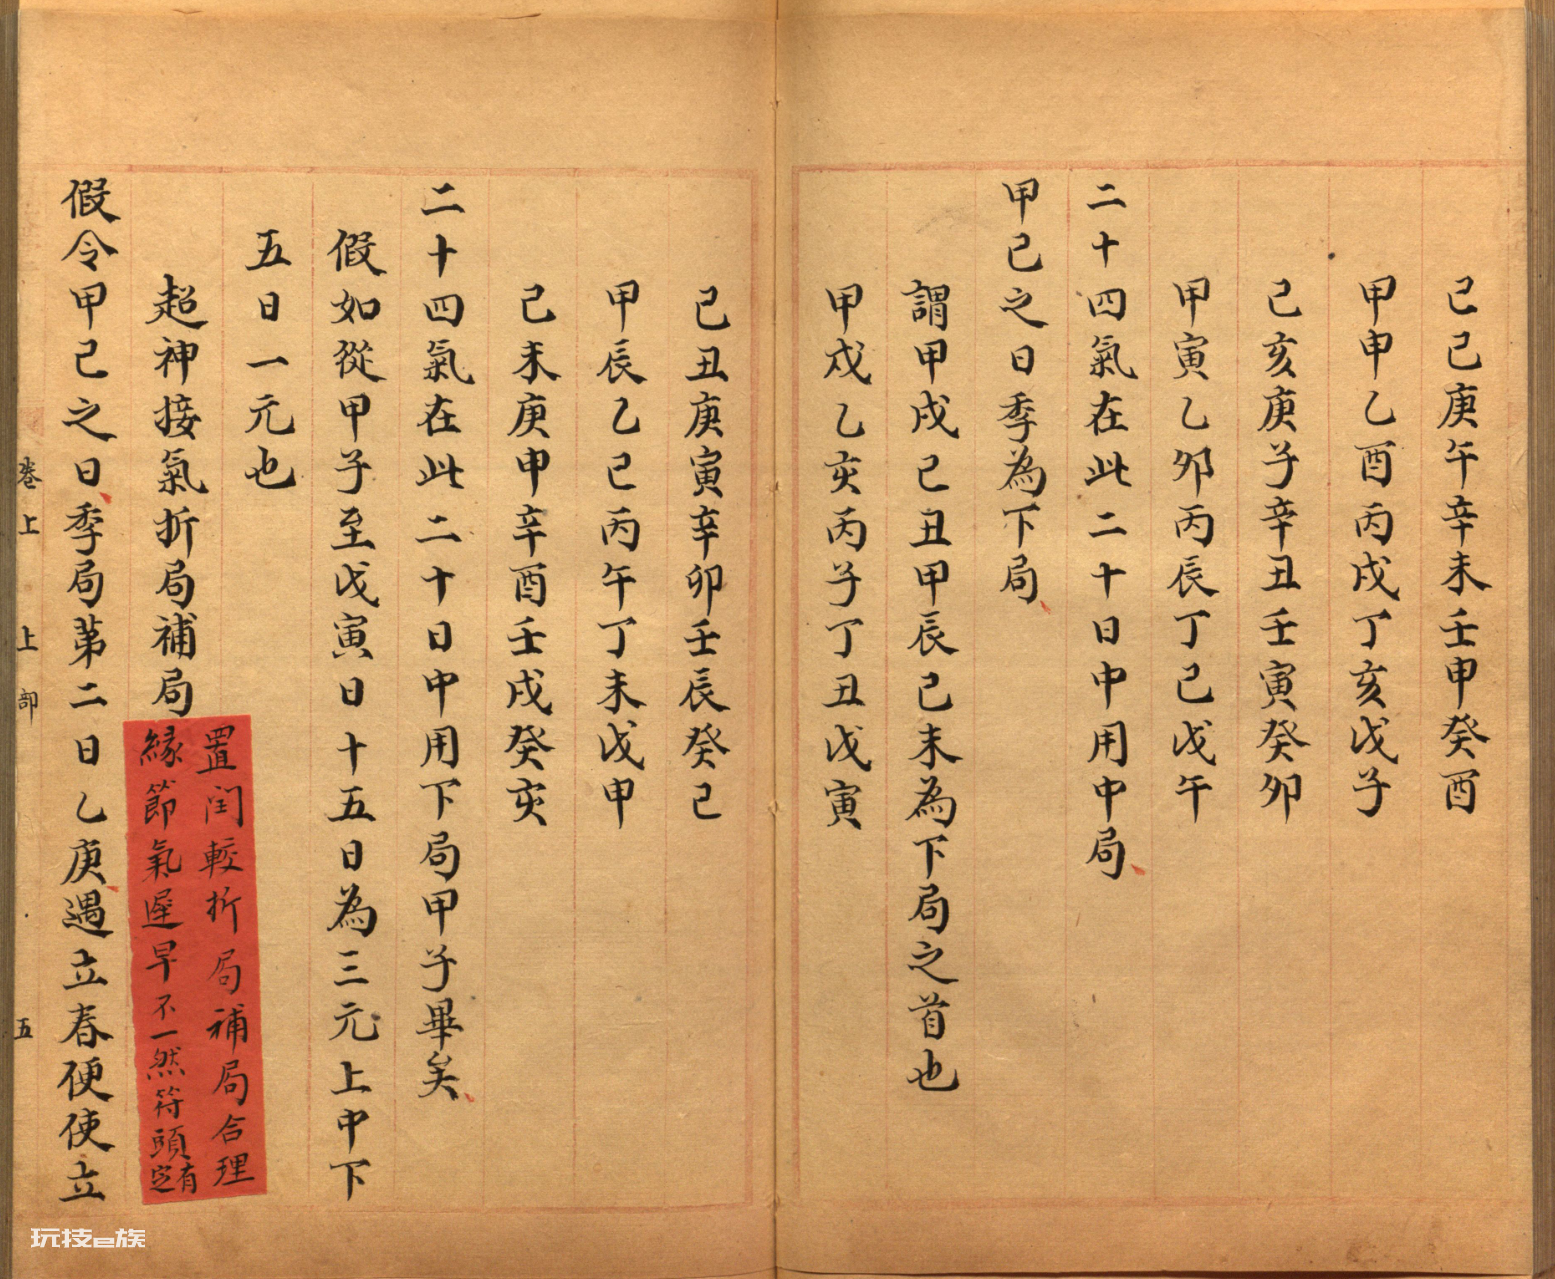 己巳庚午辛未壬申癸酉
甲申乙酉丙戌丁亥戊子
己亥庚子辛丑壬寅癸卯
甲寅乙卯丙辰丁巳戊午
二十四氣在此二十日中用中局
甲己之日季為下局
謂甲戌己丑甲辰己未為下局之首也
甲戌乙亥丙子丁丑戊寅
己丑庚寅辛卯壬辰癸巳
甲辰乙巳丙午丁未戊申
己未庚申辛酉壬戌癸亥
二十四氣在此二十日中用下局甲子畢矣
假如從甲子至戊寅日十五日為三元上中下
五日一元也
超神接氣折局補局
置閏較折局補局合理
緣節氣遲早不一然符頭有定
假令甲己之日季局第二日乙庚遇立春便使立
卷上 上部 五
玩技e族